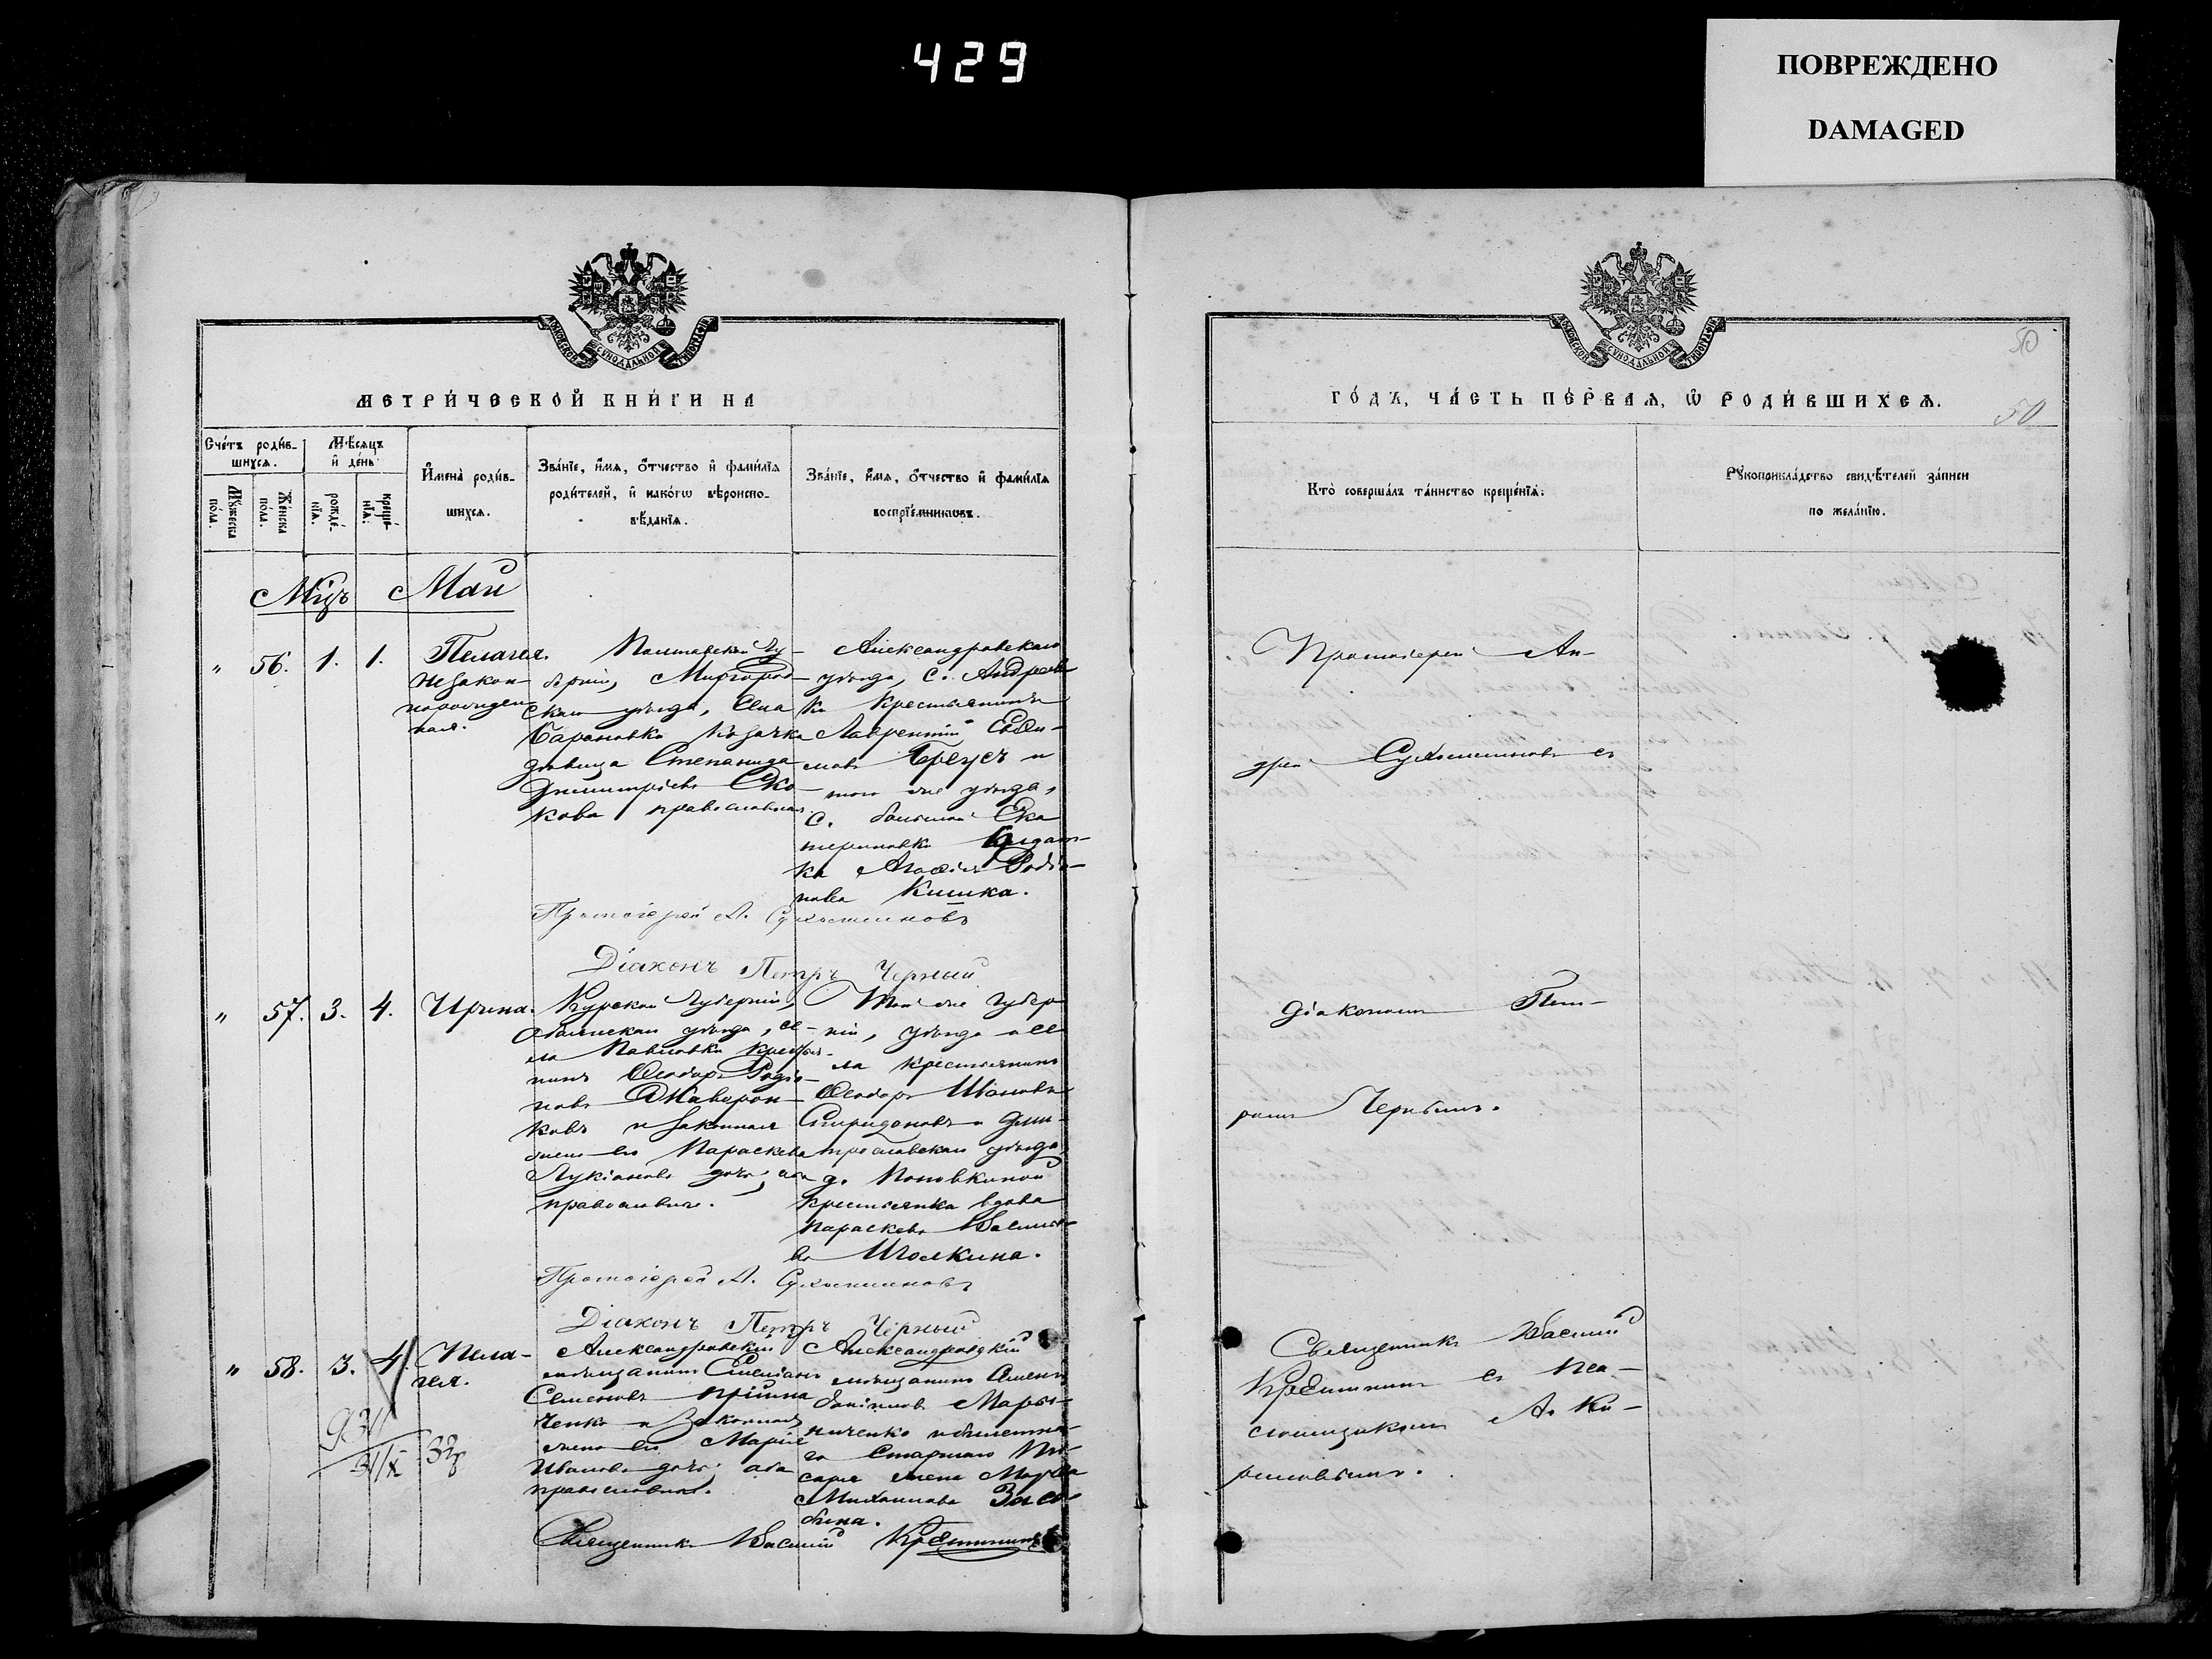 429
ПОВРЕЖДЕНО
DAMAGED
МОСКОВСКОЙ СѴНОДАЛЬНОЙ ТИПОГРАФІИ
МЕТРИ́ЧЕСКОЙ КНИ́ГИ НА
Сче́тъ роди́в-
шихся.
Мѣ́сяцъ
и҆ де́нь
Мꙋ́жеска
по́ла.
Же́нска
по́ла.
рожде́-
нїѧ.
креще́-
нїѧ:
И҆мена̀ роди́в-
шихсѧ.
Зва́нїе, и҆́мѧ, ѻ҆́тчество и҆ фами́лїѧ
роди́телей, и҆ како́гѡ вѣ̀роиспо-
вѣ́данїѧ.
Зва́нїе, и҆́мѧ, ѻ҆́тчество и҆ фами́лїѧ
воспрїе́мникѡвъ.
Мцъ Май
" 56. 1. 1.
Пелагея.
незакон-
норожден
ная.
Полтавской Гу-
берніи, Миргород-
скаго уѣзда, Села
Барановки Козачка
дѣвица Степанида
Димитріева Ско-
кова православная.
Александровскаго
уѣзда, с. Андреев
ки Крестьянинъ
Лаврентій Евѳи-
мовъ Бреусъ и
того же уѣзда,
с. большой Ека
териновки Солдат-
ка Агаѳія Родіо-
нова Кишка.
Протоіерей А. Сухостиновъ
Діаконъ Петръ Черный
" 57. 3. 4. Ирина.
Курской Губерніи,
Обоянскаго уѣзда, се-
ла Павловки крестья-
нинъ Ѳеодоръ Родіо-
новъ Жаворон-
ковъ и законная
жена его Параскева
Лукіанова дочь; оба
православные.
Той же губер
ніи, уѣзда и се
ла крестьянинъ
Ѳеодоръ Ивановъ
Спиридоновъ и Дми-
тріевскаго уѣзда,
д. Поповкиной
крестьянка вдова
Параскева Василье-
ва Иголкина.
Протоіерей А. Сухостиновъ
Діаконъ Петръ Черный
" 58. 3. 4.
Пела-
гея.
Александровскій
мѣщанинъ Стефанъ
Семеновъ
ченко и Законная
жена его Марія
Иванова дочь; оба
православные.
Александровскій
мѣщанинъ Семенъ
Марья-
ниченко
го Старшаго Пи-
саря жена Марѳа
Михаилова
бина.
Священникъ Василій
931
31/X
328
ГО́ДЪ, ЧА́СТЬ ПЕ́РВАЯ, Ѡ РОДИ́ВШИХСЯ.
50
50
Кто̀ соверша́лъ та́инство креще́нїѧ:
Рꙋкоприкла́дство свидѣ́телей за́писи
по жела́нїю.
Протоіерей Ан-
дрей Сухостиновъ съ
діакономъ Пет-
ромъ Чернымъ.
Священникъ Василій
съ Пса-
ломщикомъ А. Ки-